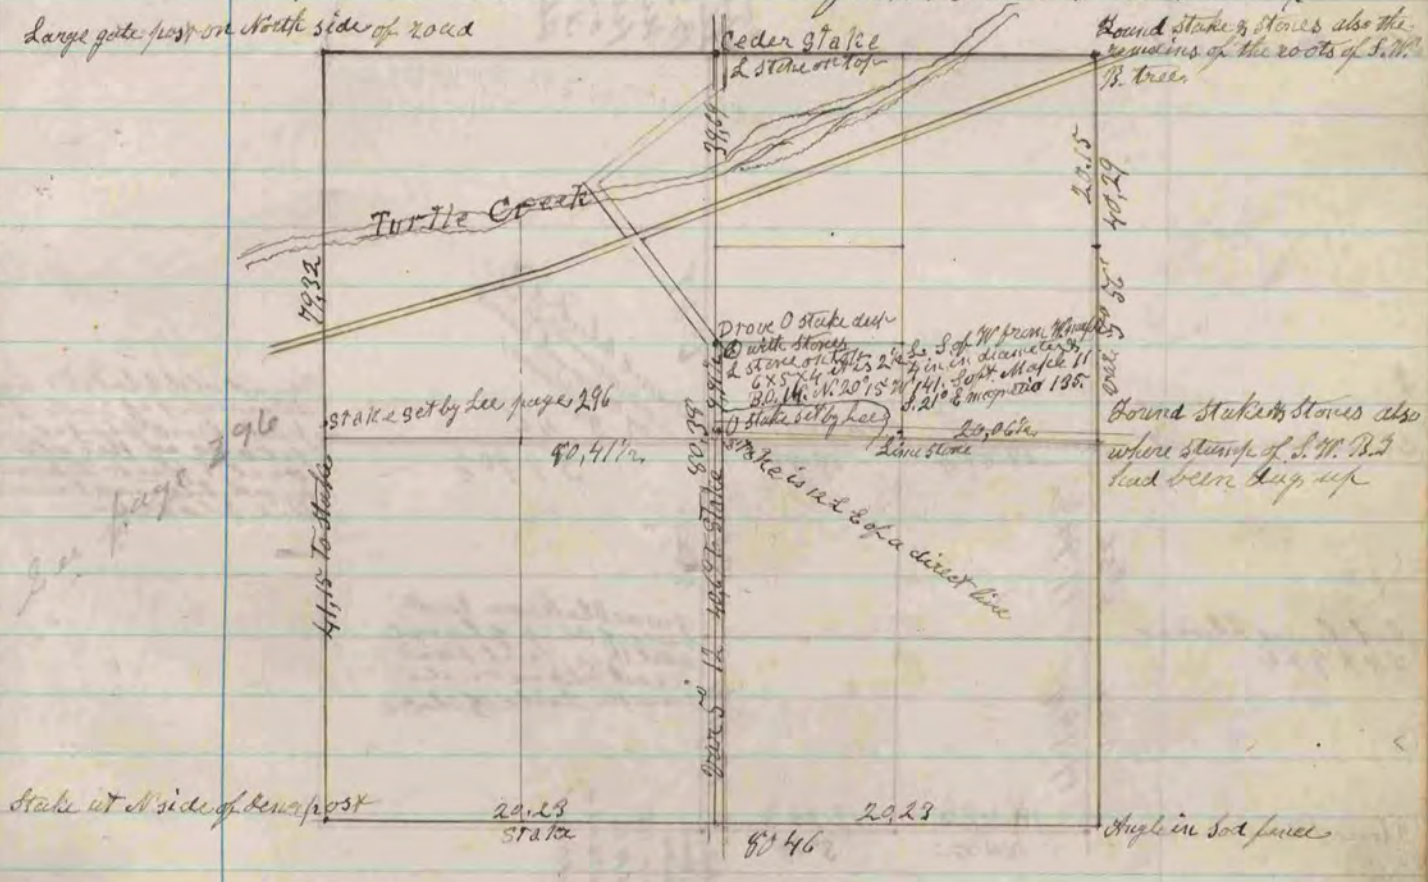 Large gate post on North side of road
Ceder Stake
& stone on top
Found stake & stones also the
remains of the roots of S.W.
B. tree
39,64
20.15
40,29
Turtle Creek
79,32
Drove O stake deep
with stones
& stone on top
6x5x4 it is 2½ Ls S of W from
4 in in diameter &
B.O. 14. N. 20°15 W 141. Soft Maple 11
S. 21° E magnetic 135.
O stake set by Lee
Stake set by Lee page 296
80,41½
80,39
20,06½
Lime stone
Found Stake & Stones also
where stump of S.W. B.T
had been dug up
See page 296
Stake is 12 L E of a direct line
41,15 to Stake
40,69 to Stake
Var 5° 12
Stake at N side of fence post
20,23
Stake
80 46
20,23
Angle in Sod fence